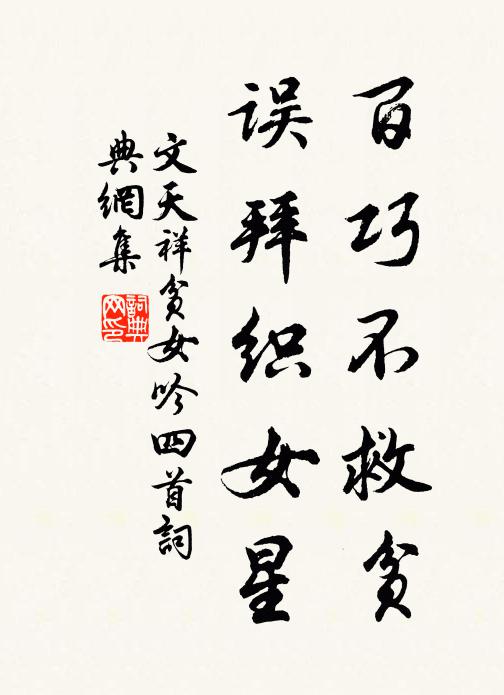 百巧不救贫
误拜织女星
文天祥贫女吟四首词
典網集
詞典
网印